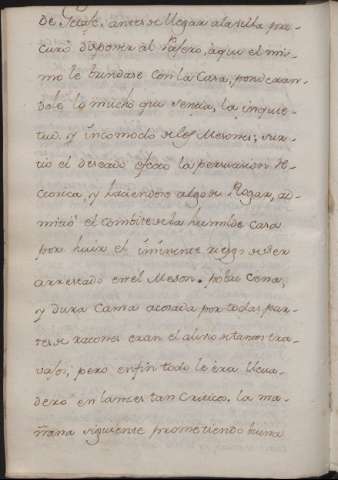 de Getafe, antes de llegar a la villa pro-
curò disponer al Pasero, a que el mis-
mo le brindase con la Casa; ponderan-
dole lo mucho que sentia, la inquie-
tud, y incomodo de los Mesones; sur-
tio el deseado efecto la persuasion re-
torica, y haciendose algo de rogar, ad-
mitiò el combite de la humilde casa
por huir el inminente riesgo de ser
arrestado en el Meson. pobre Cena,
y dura Cama acosada por todas par-
tes de ratones eran el alivio de tantos tra-
vajos; pero enfin todo le era lleva-
dero en lances tan Criticos. la ma-
ñana siguiente prometiendo buena